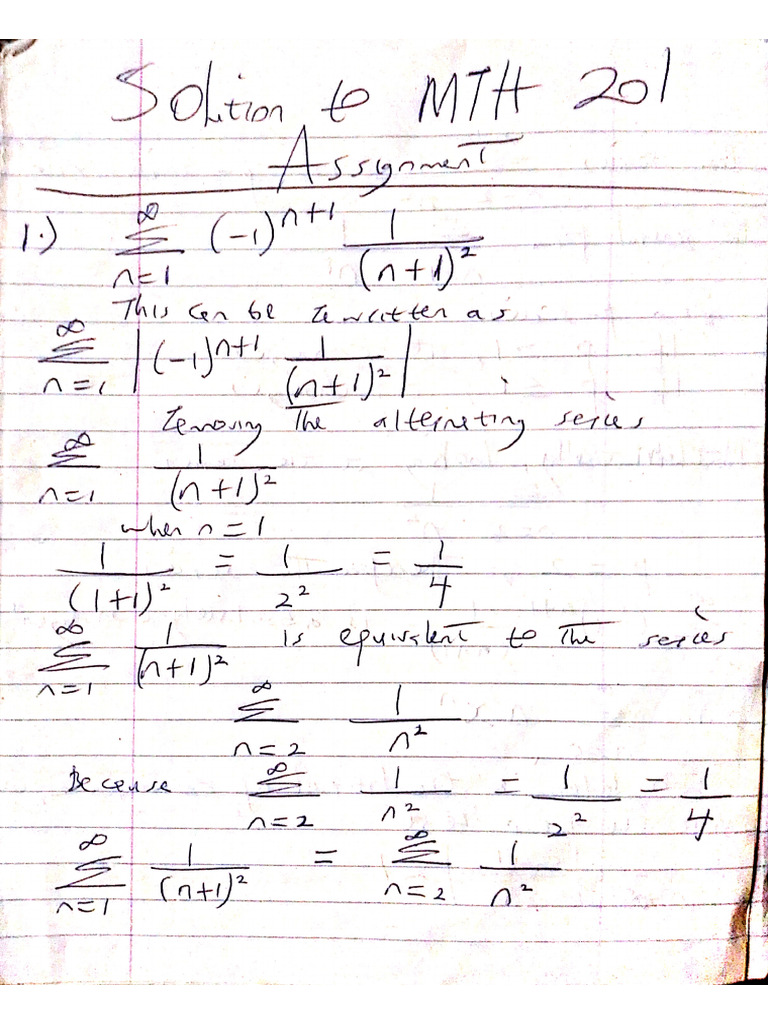 Solution to MTH 201
Assignment
1.) ∞Σn=1 (-1)^n+1 1/(n+1)^2
This can be rewritten as
∞Σn=1 |(-1)^n+1 1/(n+1)^2|
removing the alternating series
∞Σn=1 1/(n+1)^2
when n=1
1/(1+1)^2 = 1/2^2 = 1/4
∞Σn=1 1/(n+1)^2 is equivalent to the series
∞Σn=2 1/n^2
Because ∞Σn=2 1/n^2 = 1/2^2 = 1/4
∞Σn=1 1/(n+1)^2 = ∞Σn=2 1/n^2